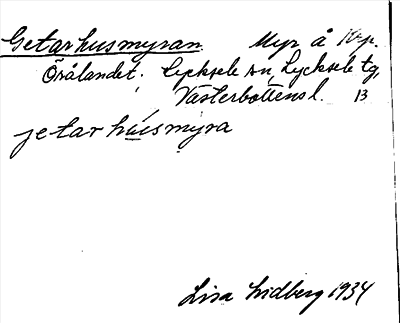 Getarhusmyran. Myr å krp.
Örålandet, Lycksele sn, Lycksele tg,
Västerbottens l. 13
jetarhúsmyra
Lisa Lidberg 1934